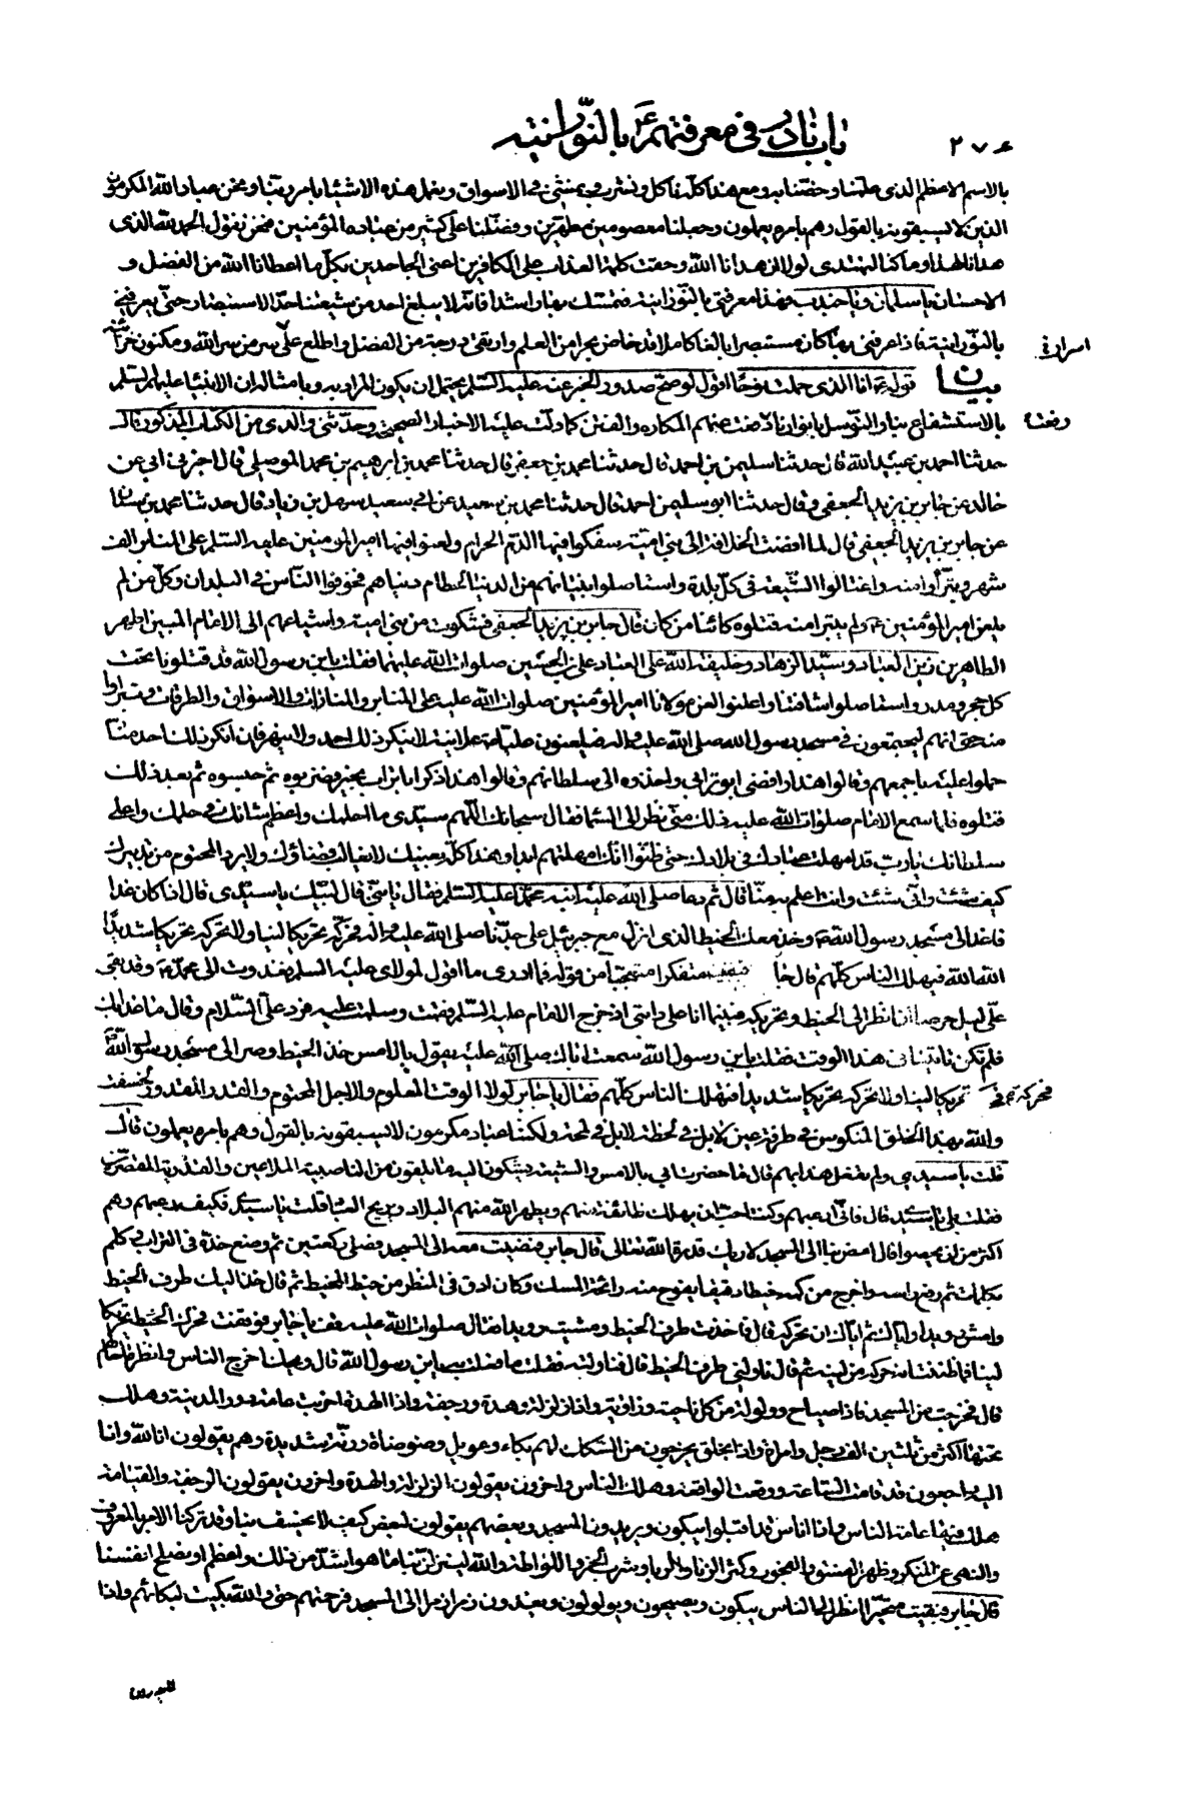 ٢٧٤ باب نادر في معرفتهم ع بالنورانية
بالاسم الاعظم الذى علمنا وخصنا به ومع هذا كله ناكل ونشرب ونمشى فى الاسواق ونعمل هذه الاشياء بامر ربنا ونحن عباد الله المكرمون
الذين لا يسبقونه بالقول وهم بامره يعملون وجعلنا معصومين مطهرين وفضلنا على كثير من عباده المؤمنين فنحن نقول الحمد لله الذى
هدانا لهذا وما كنا لنهتدى لولا ان هدانا الله وحقت كلمة العذاب على الكافرين اعنى الجاحدين بكل ما اعطانا الله من الفضل و
الاحسان يا سلمان ويا جندب فهذا معرفتى بالنورانية فتمسك بها راشدا فانه لا يبلغ احد من شيعتنا حد الاستبصار حتى يعرفنى
بالنورانية فاذا عرفنى بها كان مستبصرا بالغا كاملا قد خاض بحرا من العلم وارتقى درجة من الفضل واطلع على سر من سر الله ومكنون خزائنه
اسرار خ
بيان قوله ع انا الذى حملت نوحا اقول لو صح صدور الخبر عنه عليه السلام يحتمل ان يكون المراد به وبامثاله ان الانبياء عليهم السلام
بالاستشفاع بنا والتوسل بانوارنا رفعت عنهم المكاره والفتن كما دلت عليه الاخبار الصحيحة وحدثنى والدى من الكتاب المذكور قال
حدثنا احمد بن عبيد الله قال حدثنا سليمن بن احمد قال حدثنا محمد بن جعفر قال حدثنا محمد بن ابرهيم بن محمد الموصلى قال اخبرنى ابى عن
خالد عن جابر بن يزيد الجعفى وقال حدثنا ابو سليمن احمد قال حدثنا محمد بن سعيد عن ابى سعيد سهل بن زياد قال حدثنا محمد بن سنان
عن جابر بن يزيد الجعفى قال لما افضت الخلافة الى بنى امية سفكوا فيها الدم الحرام ولعنوا فيها امير المؤمنين عليه السلام على المنابر الف
شهر وتبرأوا منه واغتالوا الشيعة فى كل بلدة واستاصلوا بنيانهم من الدنيا لحطام دنياهم فخوفوا الناس فى البلدان وكل من لم
يلعن امير المؤمنين ع ولم يتبرا منه قتلوه كائنا من كان قال جابر بن يزيد الجعفى فشكوت من بنى امية واشياعهم الى الامام المبين اطهر
الطاهرين زين العباد وسيد الزهاد وخليفة الله على العباد على بن الحسين صلوات الله عليهما فقلت يا بن رسول الله قد قتلونا تحت
كل حجر ومدر واستاصلوا شافتنا واعلنوا لعن مولانا امير المؤمنين صلوات الله عليه على المنابر والمنارات والاسواق والطرقات وتبراوا
منه حتى انهم ليجتمعون فى مسجد رسول الله صلى الله عليه واله فيلعنون عليا ع علانية لا ينكر ذلك احد ولا ينهر فان انكر ذلك احد منا
حملوا عليه باجمعهم وقالوا هذا رافضى ابو ترابى واخذوه الى سلطانهم وقالوا هذا ذكر ابا تراب بخير فضربوه ثم حبسوه ثم بعد ذلك
قتلوه فلما سمع الامام صلوات الله عليه ذلك منى نظر الى السماء فقال سبحانك اللهم سيدى ما احلمك واعظم شانك فى حلمك واعلى
سلطانك يا رب قد امهلت عبادك فى بلادك حتى ظنوا انك امهلتهم ابدا وهذا كله بعينك لا يغالب قضاؤك ولا يرد المحتوم من تدبيرك
كيف شئت وانى شئت وانت اعلم به منا قال ثم دعا صلى الله عليه ابنه محمدا عليه السلام فقال يا بنى قال لبيك يا سيدى قال اذا كان غدا
فاغد الى مسجد رسول الله ص وخذ معك الخيط الذى انزل مع جبرئيل على جدنا صلى الله عليه واله فحركه تحريكا لينا ولا تحركه تحريكا شديدا
الله الله فيهلك الناس كلهم قال جا فبقيت متفكرا متعجبا من قوله فما ادرى ما اقول لمولاى عليه السلم فغدوت الى محمد ع وقد بقى
على ليل حرصا ان انظر الى الخيط وتحريكه فبينما انا على دابتى اذ خرج الامام عليه السلم فقمت وسلمت عليه فرد على السلام وقال ما غدا بك
فلم تكن تاتينا فى هذا الوقت فقلت يا بن رسول الله سمعت اباك صلى الله عليه يقول بالامس خذ الخيط وصر الى مسجد رسول الله ص
فحركه خ تحريكا لينا ولا تحركه تحريكا شديدا فتهلك الناس كلهم فقال يا جابر لولا الوقت المعلوم والاجل المحتوم والقدر المقدور لخسفت
والله بهذا الخلق المنكوس فى طرفة عين لا بل فى لحظة لا بل فى لمحة ولكننا عباد مكرمون لا نسبقونه بالقول وهم بامره يعملون قال
قلت يا سيدى ولم تفعل هذا بهم قال ما حضرت ابى بالامس والشيعة يشكون اليه ما يلقون من الناصبية الملاعين والقدرية المقصرين
فقلت بلى يا سيدى قال فانى ارعبهم وكنت احب ان يهلك طائفة منهم ويطهر الله منهم البلاد ويريح العباد قلت يا سيدى فكيف ترعبهم وهم
اكثر من ان يحصوا قال امض بنا الى المسجد لاريك قدرة الله تعالى قال جابر فمضيت معه الى المسجد فصلى ركعتين ثم وضع خده فى التراب وكلم
بكلمات ثم رفع راسه واخرج من كمه خيطا دقيقا يفوح منه رائحة المسك وكان ادق فى المنظر من خيط المخيط ثم قال خذ اليك طرف الخيط
وامش رويدا واياك ثم اياك ان تحركه قال فاخذت طرف الخيط ومشيت رويدا فقال صلوات الله عليه قف يا جابر فوقفت فحرك الخيط تحريكا
لينا فما ظننت انه حركه من لينه ثم قال ناولنى طرف الخيط قال فناولته فقلت ما فعلت به يا بن رسول الله قال ويحك اخرج الى الناس وانظر ما حالهم
قال فخرجت من المسجد فاذا صياح وولولة من كل ناحية وزاوية واذا زلزلة وهدة ورجفة واذا الهدة اخربت عامة دور المدينة وهلك
تحتها اكثر من ثلثين الف رجل وامراة واذا بخلق يخرجون من السكك لهم بكاء وعويل وضوضاة ورنة شديدة وهم يقولون انا لله وانا
اليه راجعون قد قامت الساعة ووقعت الواقعة وهلك الناس واخرون يقولون الزلزلة والهدة واخرون يقولون الرجفة والقيامة
هلك فيها عامة الناس واذا اناس قد اقبلوا يبكون ويريدون المسجد وبعضهم يقولون لبعض كيف لا يخسف بنا وقد تركنا الامر بالمعروف
والنهى عن المنكر وظهر الفسق والفجور وكثر الزنا والربا وشرب الخمر واللواطة والله لينزلن بنا ما هو اشد من ذلك واعظم او نصلح انفسنا
قال جابر فبقيت متحيرا انظر الى الناس يبكون ويصيحون ويولولون ويغدون زمرا زمرا الى المسجد فرحمتهم حتى والله بكيت لبكائهم واذا